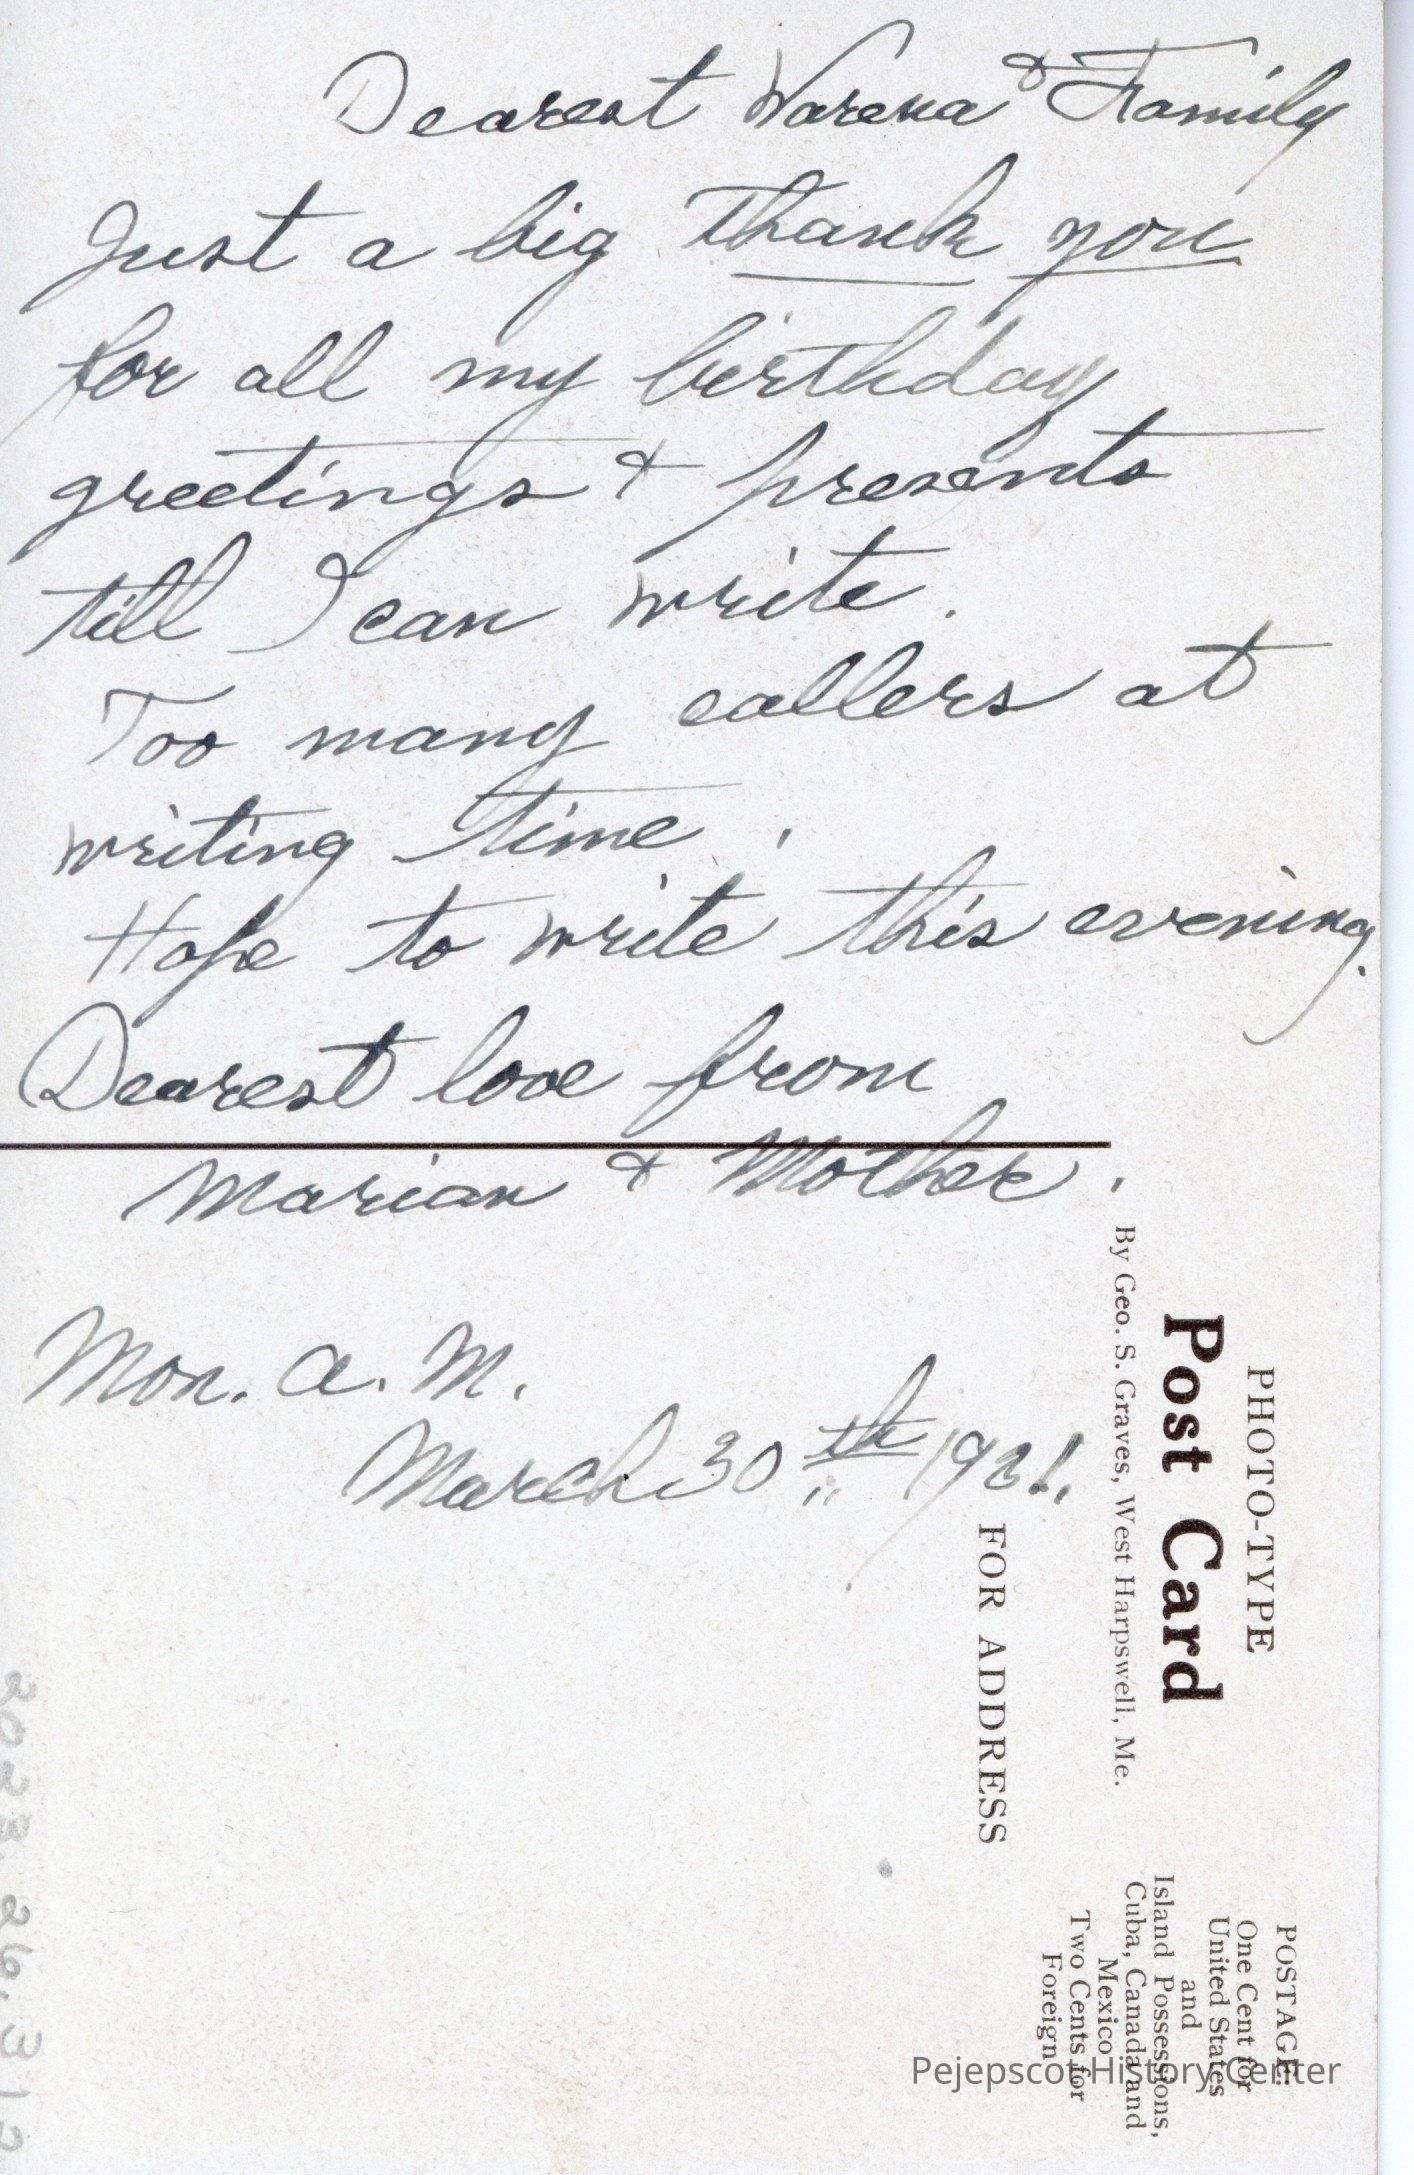 Dearest Warena & Family
Just a big thank you
for all my birthday
greetings & presents
till I can write.
Too many callers at
writing time.
Hope to write this evening.
Dearest love from
Marian & Mother.
Mon. A. M.
March 30th 1931.
PHOTO-TYPE
Post Card
By Geo. S. Graves, West Harpswell, Me.
FOR ADDRESS
POSTAGE:
One Cent for
United States
and
Island Possessions,
Cuba, Canada and
Mexico
Two Cents for
Foreign
2023.26.312
Pejepscot History Center